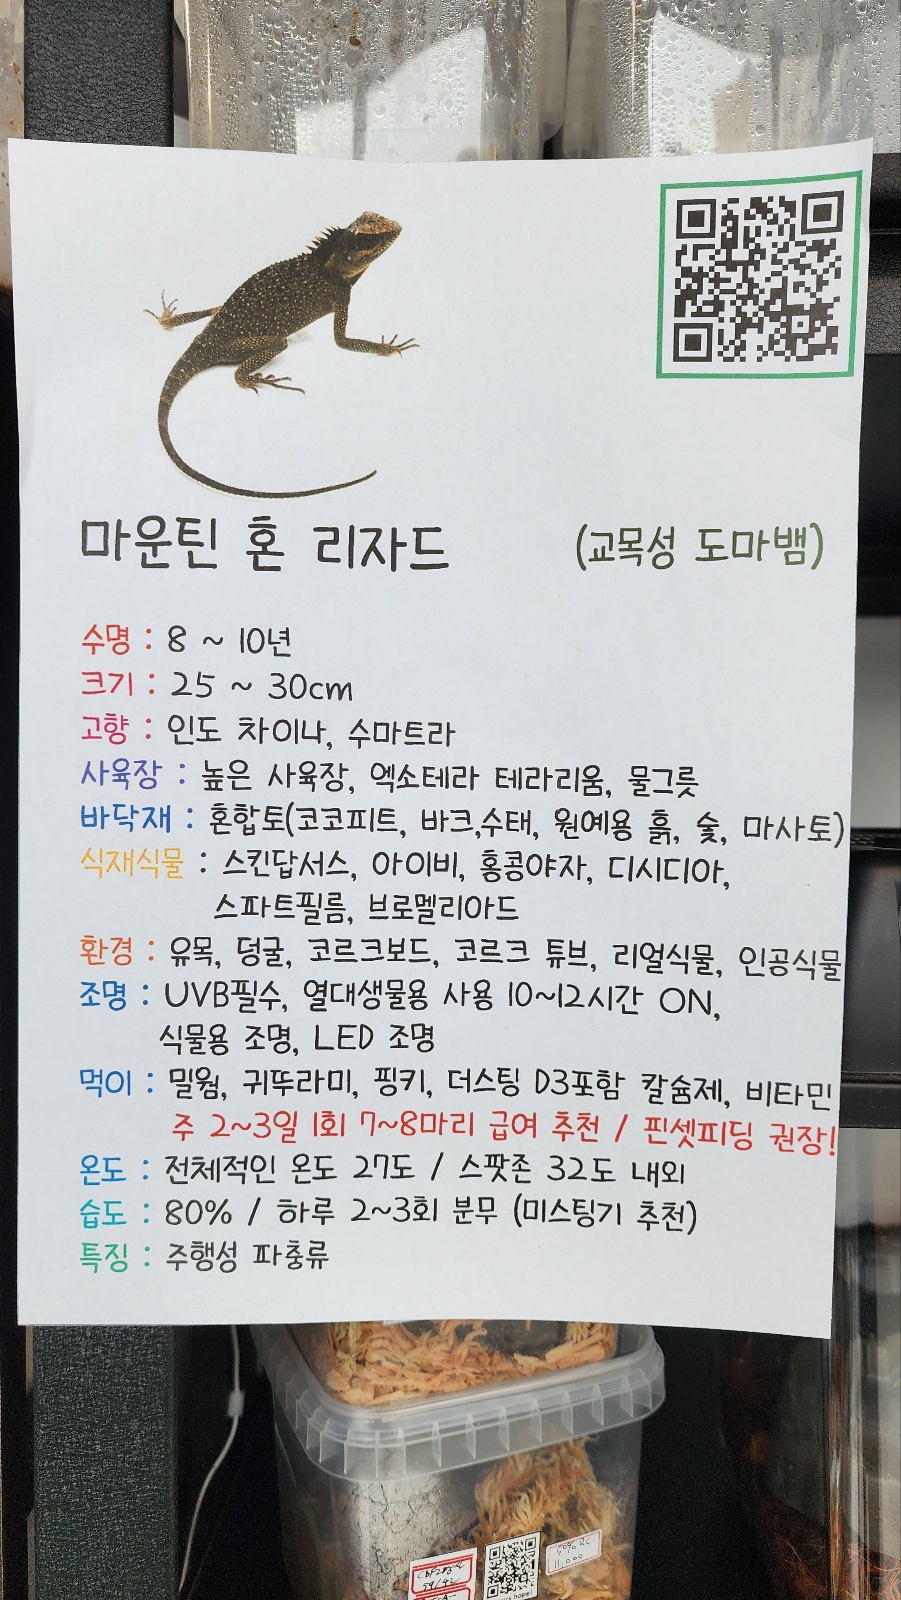 마운틴 혼 리자드 (교목성 도마뱀)
수명 : 8 ~ 10년
크기 : 25 ~ 30cm
고향 : 인도 차이나, 수마트라
사육장 : 높은 사육장, 엑소테라 테라리움, 물그릇
바닥재 : 혼합토(코코피트, 바크,수태, 원예용 흙, 숯, 마사토)
식재식물 : 스킨답서스, 아이비, 홍콩야자, 디시디아,
스파트필름, 브로멜리아드
환경 : 유목, 덩굴, 코르크보드, 코르크 튜브, 리얼식물, 인공식물
조명 : UVB필수, 열대생물용 사용 10~12시간 ON,
식물용 조명, LED 조명
먹이 : 밀웜, 귀뚜라미, 핑키, 더스팅 D3포함 칼슘제, 비타민
주 2~3일 1회 7~8마리 급여 추천 / 핀셋피딩 권장!
온도 : 전체적인 온도 27도 / 스팟존 32도 내외
습도 : 80% / 하루 2~3회 분무 (미스팅기 추천)
특징 : 주행성 파충류
11,000